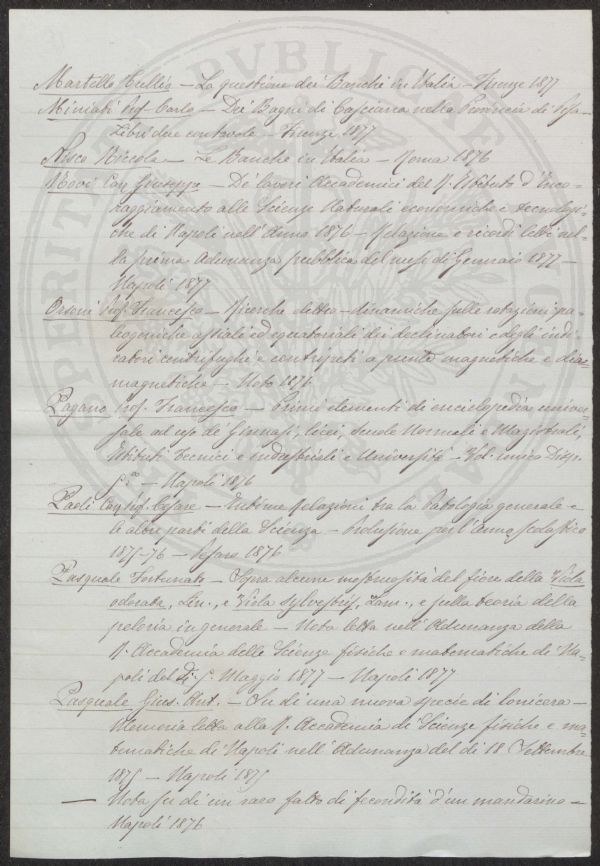 Martello Tullio – La questione dei Banchi in Italia – Firenze 1877
Miniati Prof. Carlo – Dei Bagni di Casciana nella Provincia di Pisa –
Libri due – Firenze 1877
Nisco Niccola – Le Banche in Italia – Roma 1876
Novi Cav. Giuseppe – De' lavori Accademici del R. Istituto d'Inco-
raggiamento alle Scienze Naturali economiche e tecnologi-
che di Napoli nell'Anno 1876 – Relazione e ricordi letti nel-
la prima Adunanza pubblica del mese di Gennaio 1877 –
Napoli 1877
Orsoni Prof. Francesco – Ricerche elettro-dinamiche sulle rotazioni pa-
leogeniche assiali ed equatoriali dei declinatori e degli indi-
catori centrifughi e centripeti a punte magnetiche e dia-
magnetiche – Noto 1876
Pagano Prof. Francesco – Primi elementi di enciclopedia univer-
sale ad uso de' Ginnasi, Licei, Scuole Normali e Magistrali,
Istituti Tecnici e industriali e Università – Vol. unico Disp.
5.ª – Napoli 1876
Paoli Cav. Prof. Cesare – Intime Relazioni tra la Patologia generale e
le altre parti della Scienza – Prolusione per l'anno scolastico
1875-76 – Pesaro 1876
Pasquale Fortunato – Sopra alcune mostruosità del fiore della Viola
odorata, Lin., e Viola sylvestris, Lam., e sulla teoria della
peloria in generale – Nota letta nell'Adunanza della
R. Accademia delle Scienze fisiche e matematiche di Na-
poli del dì 5 Maggio 1877 – Napoli 1877
Pasquale Gius. Ant. – Su di una nuova specie di lonicera –
Memoria letta alla R. Accademia di Scienze fisiche e ma-
tematiche di Napoli nell'Adunanza del dì 18 Settembre
1875 – Napoli 1875
— Nota su di un raro fatto di fecondità d'un mandarino –
Napoli 1876